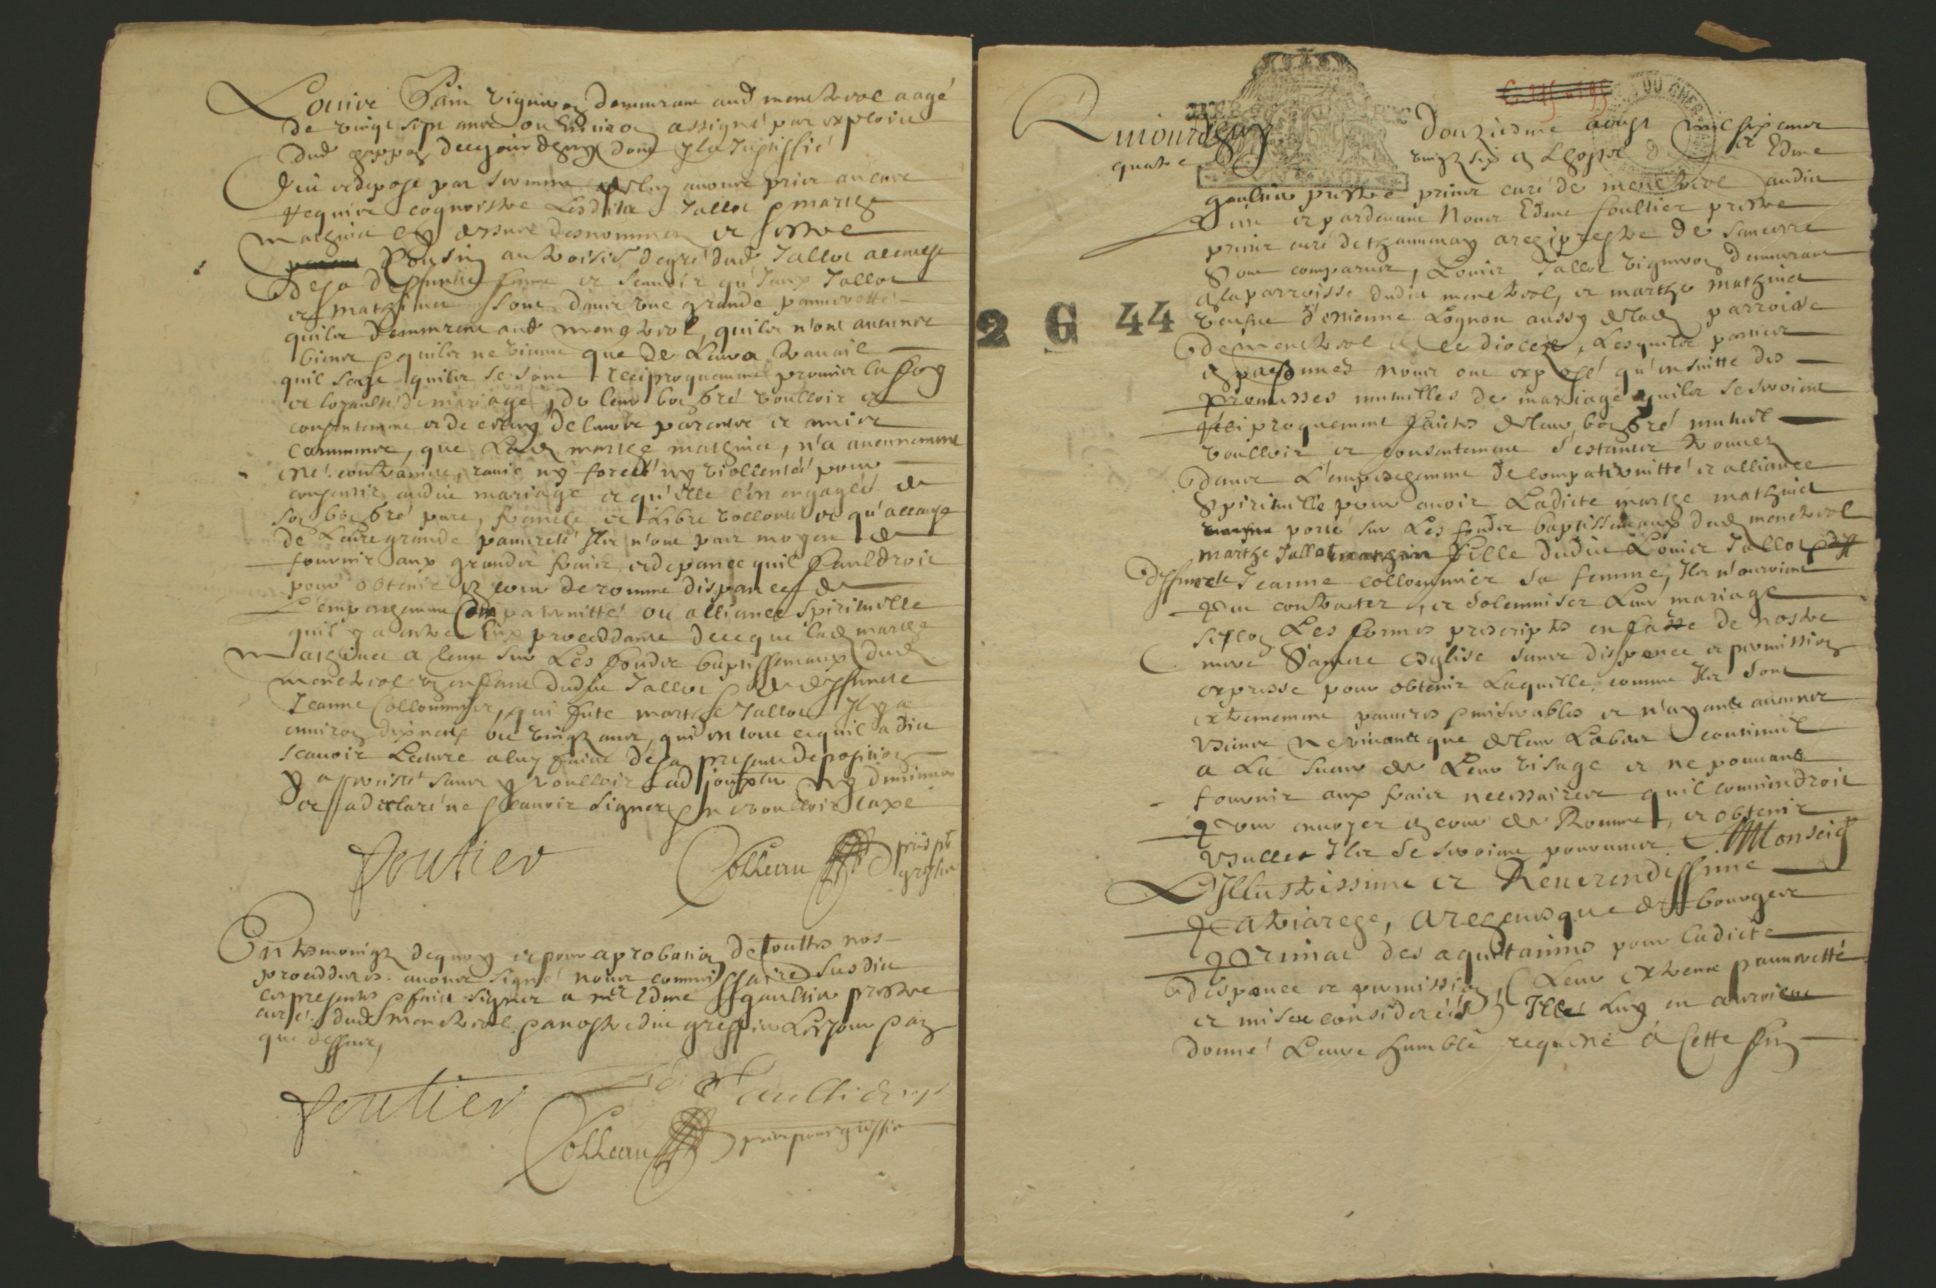 Louis Pain vigneron demeurant aud menetreol aagé
de vingt sept ans ou environ assigné par exploict
dud jour d'huy dont Il a Justiffié
ouï et depose par serment
requis cognoistre Lesdits Jallot & marthe
mathieu et estre
Cousin au troisie degré dud Jallot a cause
de sa deffuncte femme et scavoir qu'Iceux Jallot
et mathieu sont dans une grande pauvretté
quils demeurent aud menetreol, quils n'ont aucuns
biens & quils ne vivent que de Leur travail
quil scayt quils se sont reciproquement promis la foy
et loyaulté de mariage, de leur bon gré voulloir et
consentement et de celuy de leurs parents et amis
communs, que Lad marthe mathieu, n'a aucunement
esté contrainte, ravie ny forcée ny viollentée pour
consentir audit mariage et qu'elle s'en engagée de
son bon gré pure, franche et Libre vollonté et qu'a cause
de Leurs grande pauvreté Ils n'ont pas moyen de
fournir aux grands frais et depance quil fauldroit
pour obtenir en cour de romme dispance de
L'empeschement de paternitté ou alliance spirituelle
quil y a entre Eux proceddante de ce que lad marthe
mathieu a tenu sur Les fonds baptissemaux dud
menetreol un enfant dudit Jallot & de deffuncte
Jeanne Collommier, qui fute marthe Jallot Il y a
environ dix neuf ou vingt ans, qui en tout ce quil a dit
scavoir Lecture a luy faicte de sa presente deposition
y a persisté sans y voulloir adjouster ny diminuer
et a declaré ne scavoir signer & n'a voulloir taxe
Foultier Colleau
greffier
En tesmoing de quoy et pour aprobation de touttes nos
procedures avons signé nous commissaire susdit
ces presentes & faict signer a mre Edme gaultier prestre
curé dud menetreol & a nostredit greffier Les jour & an
que dessus,
Foultier Gaultier
Colleau pris pour greffier
Aujourd'huy douziesme aoust mil six cens
quatre vingt six en Lhostel de mre Edme
gaultier prestre prieur curé de menetreol audit
Lieu et pardevant Nous Edme foultier prestre
prieur curé de thauvenay archiprestre de Sancerre
Sont comparus, Louis Jallot vigneron demeurant
en la parroisse dudit menetreol, et marthe mathieu
veufve d'Estienne Lognon aussy de lad parroisse
de menetreol en ce dioceze, Lesquels parties
en personnes nous ont exposé qu'ensuitte des
promesses mutuelles de mariage quils se seroient
reciproquement faictes de leur bon gré mutuel
voulloir et consentement s'estants trouvez
dans L'empeschement de compaternitté et alliance
Spirituelle pour avoir Ladicte marthe mathieu
porté sur Les fonds baptissemaux dud menetreol
marthe Jallot fille dudit Louis Jallot & de
deffuncte Jeanne collommier sa femme, Ils n'auroient
peu contracter, et solemniser Leur mariage
sellon Les formes prescriptes en face de nostre
mere Saincte Esglise sans dispence et permission
expresse pour obtenir Laquelle, comme Ils sont
extremement pauvres & miserables et n'ayants aucuns
biens ne vivants que de leur Labeur continuel
a La sueur de Leur visage et ne pouvans
fournir aux frais necessaires quil conviendroit
pour envoyer en cour de Romme, et obtenir
bulles Ils se seroient pourveus a Monseigr
L'Illustrissime et Reverendissime
Patriarche, Archevesque de bourges
Primat des aquitaines pour Ladicte
dispence et permission, (Leur extreme pauvretté
et misere considerée) Ils Luy en auroient
donné Leurs humble requeste a Cette fin
2 G 44
DU CHER